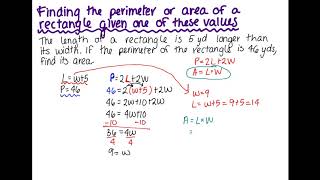 Finding the perimeter or area of a
rectangle given one of these values
The length of a rectangle is 5 yd longer than
its width. If the perimeter of the rectangle is 46 yds,
find its area.
L = w+5
P = 46
P = 2L + 2W
46 = 2(w+5) + 2W
46 = 2w+10+2w
46 = 4w+10
-10 -10
36 = 4w
4 4
9 = w
P = 2L+2W
A = L×W
W=9
L = w+5 = 9+5=14
A = L×W
=